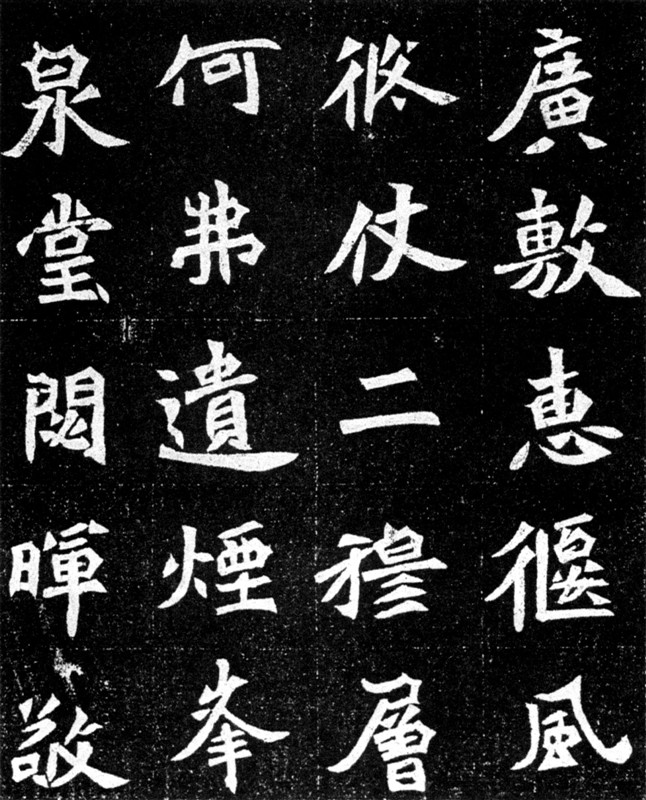 廣敷惠偃風
彼仗二穆層
何弗遺煙峯
泉堂閎暉敬